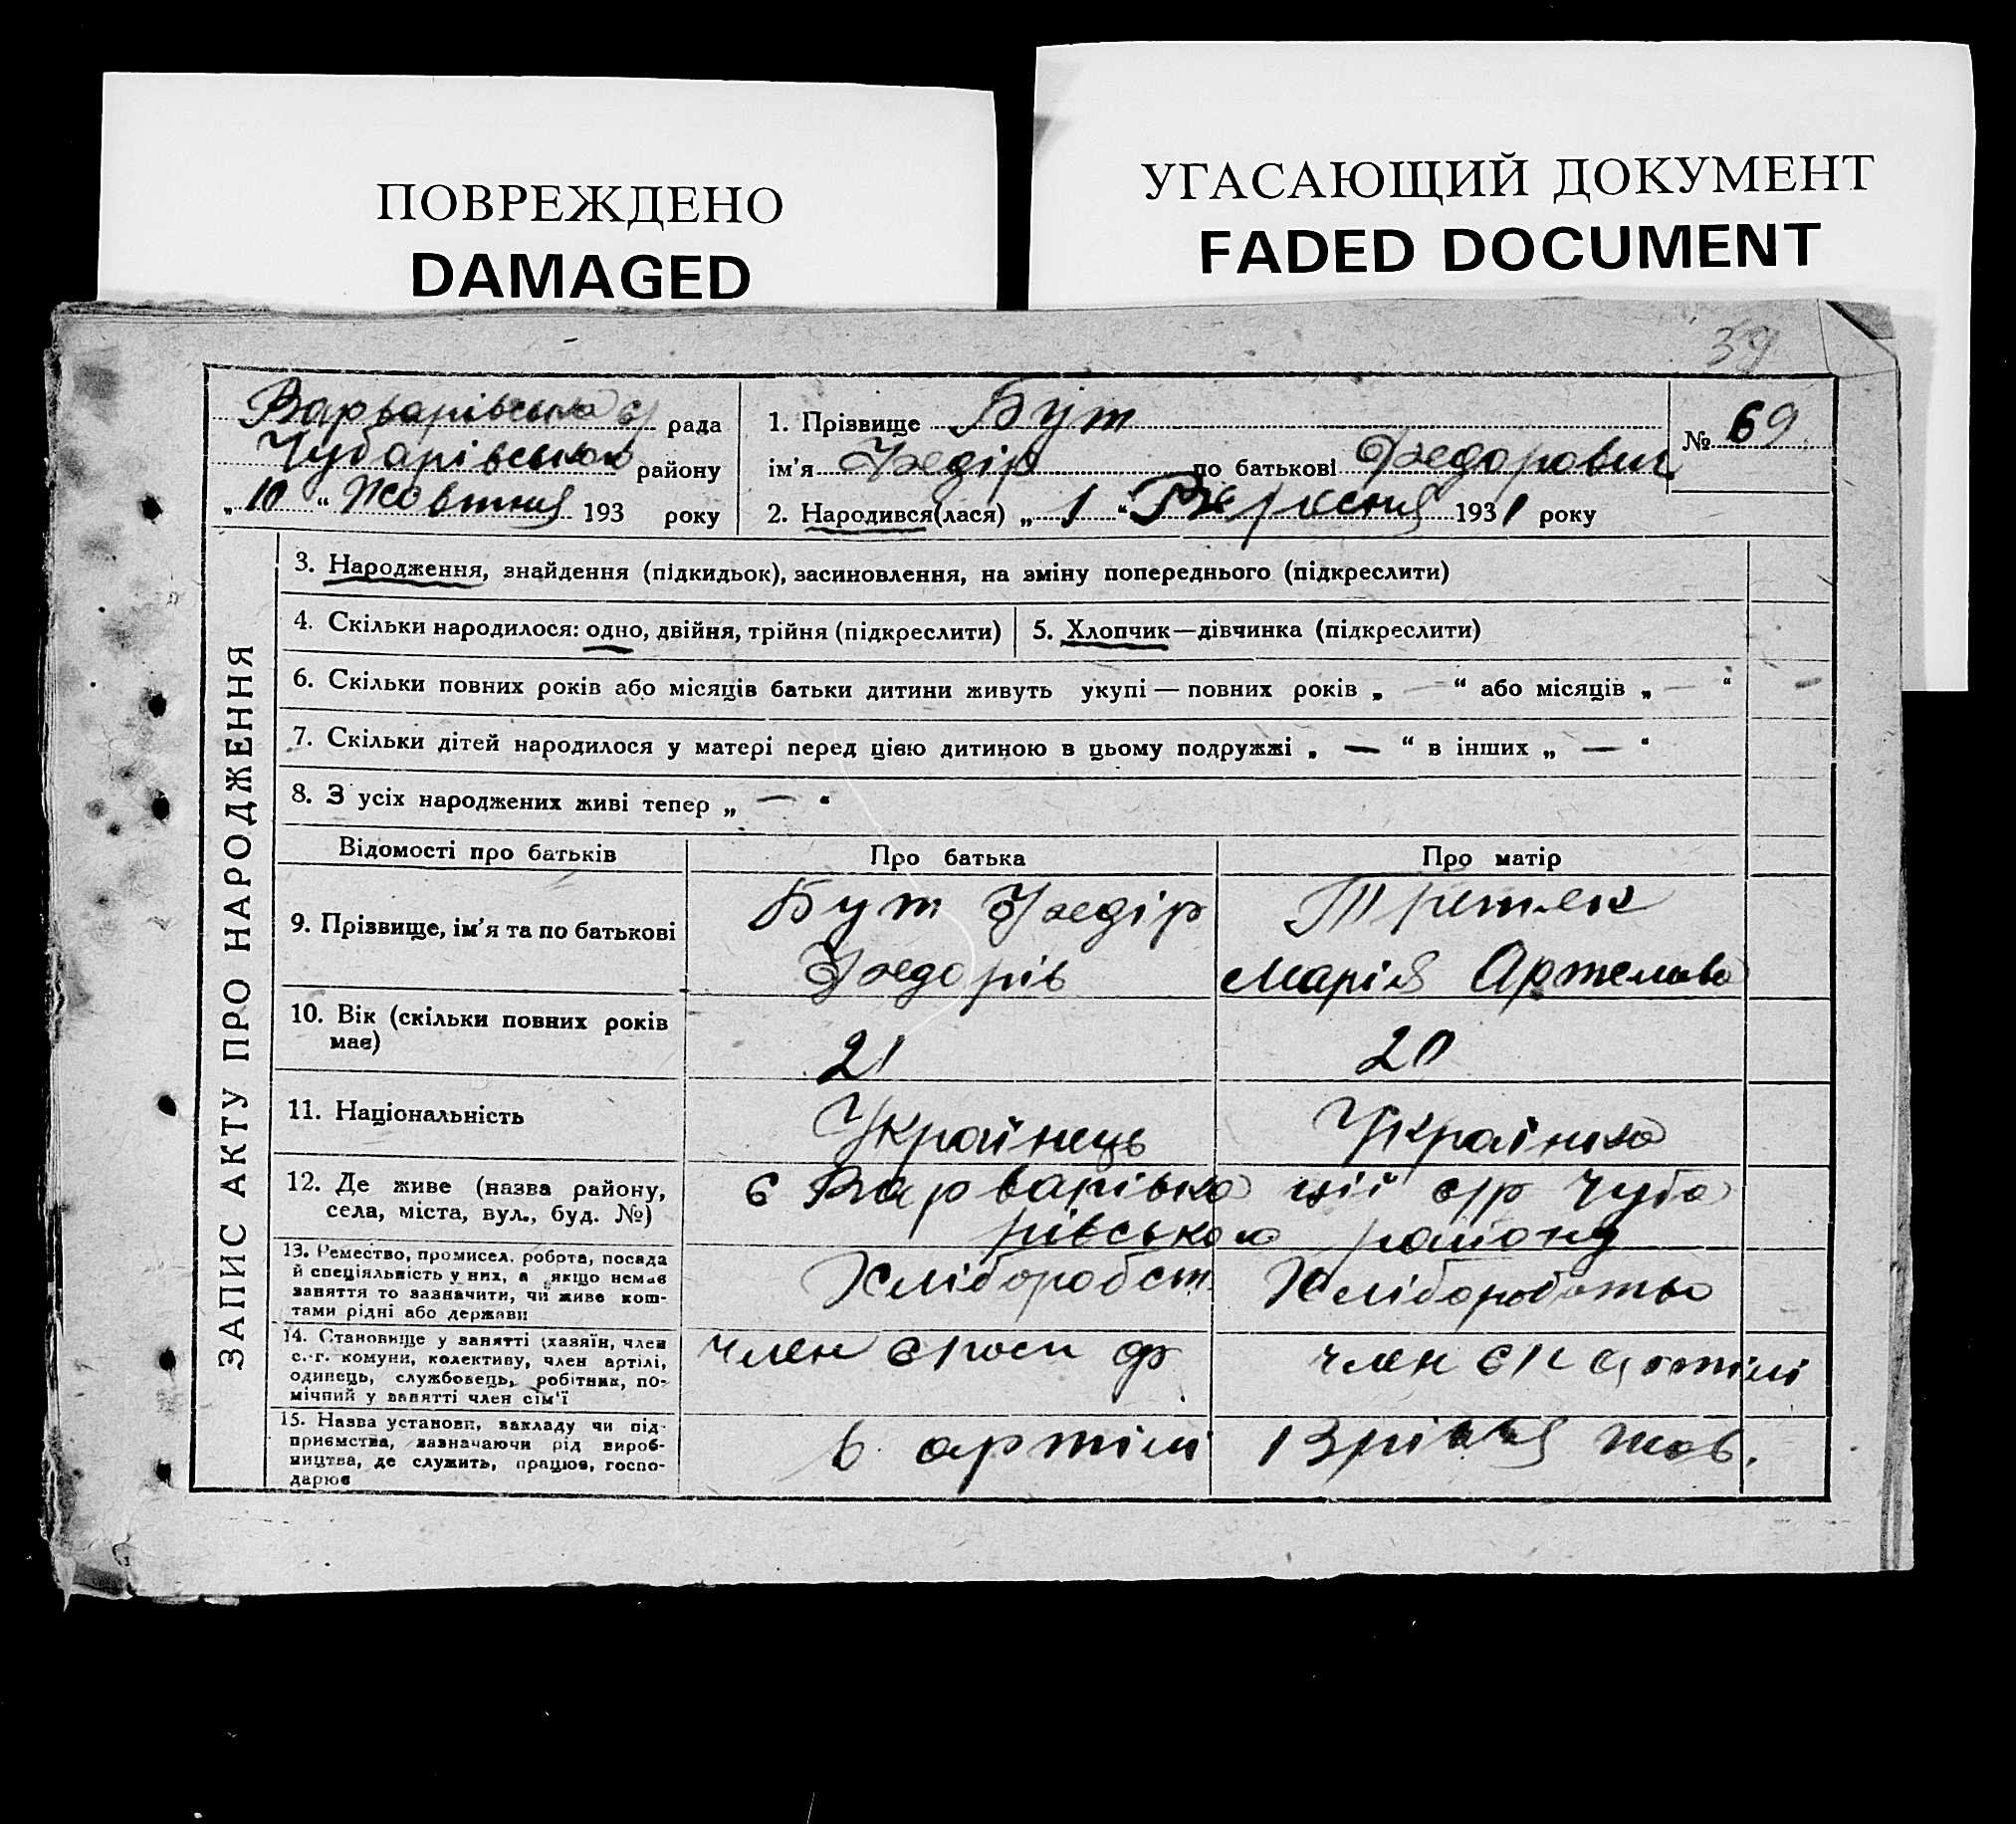 ПОВРЕЖДЕНО
DAMAGED
УГАСАЮЩИЙ ДОКУМЕНТ
FADED DOCUMENT
39
ЗАПИС АКТУ ПРО НАРОДЖЕННЯ
Варварівська с/ рада
Чубарівського району
„ 10 “ Жовтня 193 року
1. Прізвище Бут
ім'я Федір по батькові Федорович
№ 69
2. Народився(лася) „ 1 “ Вересня 1931 року
3. Народження, знайдення (підкидьок), засиновлення, на зміну попереднього (підкреслити)
4. Скільки народилося: одно, двійня, трійня (підкреслити)
5. Хлопчик—дівчинка (підкреслити)
6. Скільки повних років або місяців батьки дитини живуть укупі — повних років „ — “ або місяців „ — “
7. Скільки дітей народилося у матері перед цією дитиною в цьому подружжі „ — “ в інших „ — “
8. З усіх народжених живі тепер „ — “
Відомості про батьків
Про батька
Про матір
9. Прізвище, ім'я та по батькові
Бут Федір
Федорів
Третяк
Марія
10. Вік (скільки повних років
має)
21
20
11. Національність
Українець
Українка
12. Де живе (назва району,
села, міста, вул., буд. №)
с Варварівка ції с/р Чуба
рівського району
13. Ремество, промисел, робота, посада
й спеціяльність у них, а якщо немає
заняття то зазначити, чи живе кош-
тами рідні або держави
Хлібороб
Хліборобство
14. Становище у занятті (хазяїн, член
с.-г. комуни, колективу, член артілі,
одинець, службовець, робітник, по-
мічний у занятті член сім'ї
член
член артілі
15. Назва установи, закладу чи під-
приємства, зазначаючи рід вироб-
ництва, де служить, працює, госпо-
дарює
в артілі 13 річчя Жов.